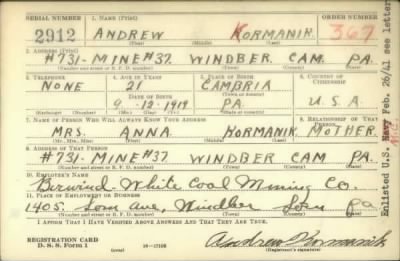 SERIAL NUMBER 1. NAME (Print) ORDER NUMBER
2912 ANDREW KORMANIK 367
(First) (Middle) (Last)
2. ADDRESS (Print)
#731-MINE#37. WINDBER. CAM. PA.
(Number and street or R. F. D. number) (Town) (County) (State)
3. TELEPHONE 4. AGE IN YEARS 5. PLACE OF BIRTH 6. COUNTRY OF CITIZENSHIP
NONE 21 CAMBRIA
DATE OF BIRTH (Town or county)
9-12-1919 PA. U.S.A.
(Exchange) (Number) (Mo.) (Day) (Yr.) (State or country)
7. NAME OF PERSON WHO WILL ALWAYS KNOW YOUR ADDRESS 8. RELATIONSHIP OF THAT PERSON
MRS. ANNA KORMANIK MOTHER
(Mr., Mrs., Miss) (First) (Middle) (Last)
9. ADDRESS OF THAT PERSON
#731-MINE#37 WINDBER CAM PA.
(Number and street or R. F. D. number) (Town) (County) (State)
10. EMPLOYER'S NAME
Berwind-White Coal Mining Co.
11. PLACE OF EMPLOYMENT OR BUSINESS
1405. Som Ave, Windber Som Pa
(Number and street or R. F. D. number) (Town) (County) (State)
I AFFIRM THAT I HAVE VERIFIED ABOVE ANSWERS AND THAT THEY ARE TRUE.
REGISTRATION CARD
D. S. S. Form 1 16—17105 Andrew Kormanik
(Registrant's signature)
Enlisted U.S. Navy Feb. 26/41 see letter